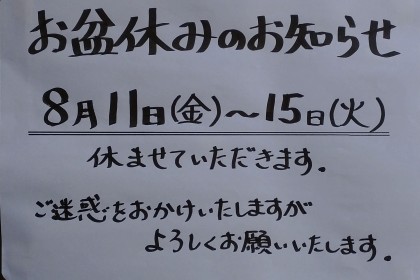 お盆休みのお知らせ
8月11日(金)～15日(火)
休ませていただきます.
ご迷惑をおかけいたしますが
よろしくお願いいたします.